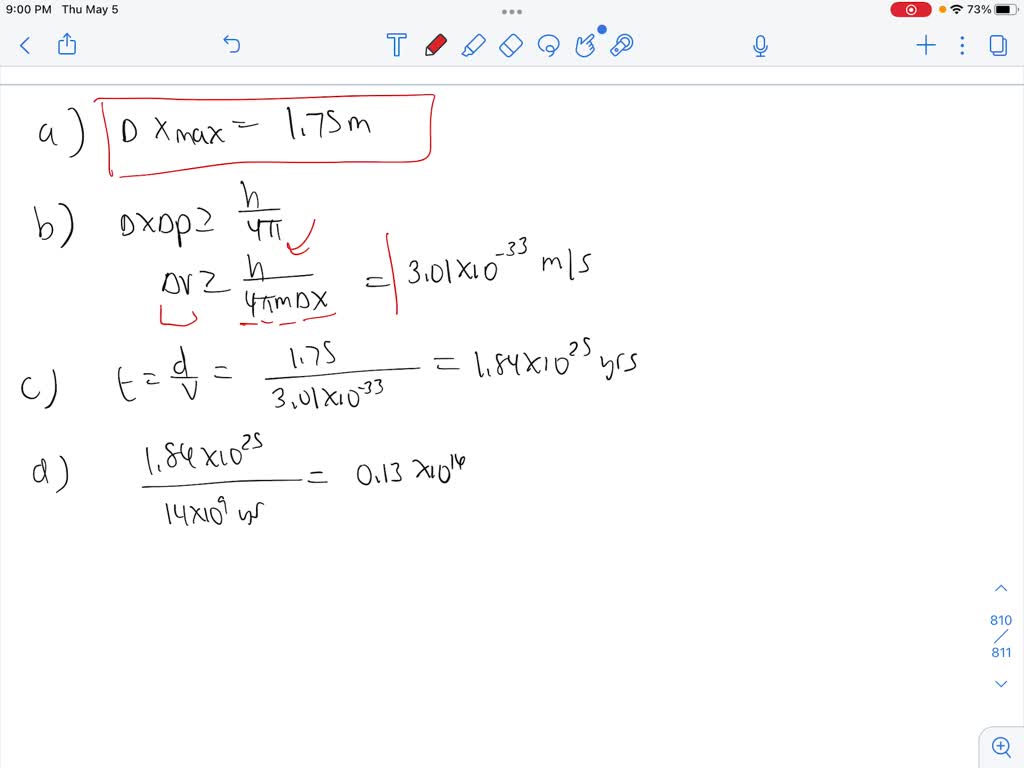 9:00 PM Thu May 5
73%
a) D Xmax = 1.75m
b) DXDp ≥ h/4π
DV ≥ h/4πmDX = 3.01x10^-33 m/s
c) t = d/v = 1.75/3.01x10^-33 = 1.84x10^25 yrs
d) 1.84x10^25/14x10^9 yr = 0.13 x10^16
810
811